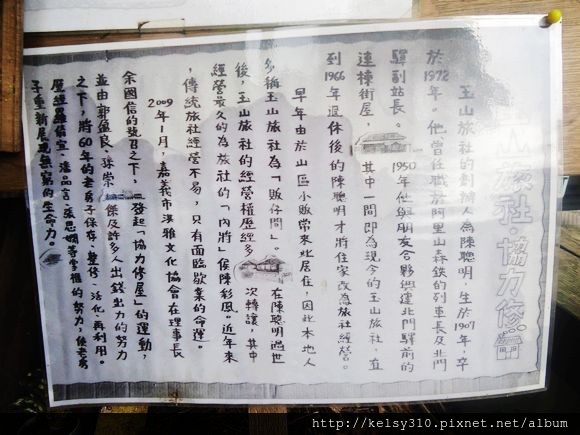 旅社‧協力修
玉山旅社的創辦人為陳聰明,生於1907,卒
於1972年。他曾任職於阿里山森鐵的列車長及北門
驛副站長。1950年他與朋友合夥興建北門驛前的
連棟街屋,其中一間即為現今的玉山旅社。直
到1966年退休後的陳聰明才將住家改為旅社經營。
早年由於山區小販常來此居住,因此本地人
多稱玉山旅社為「販仔間」。在陳聰明過世
後,玉山旅社的經營權歷經多次轉讓,其中
經營最久的為旅社的「內將」侯陳彩鳳。近年來
,傳統旅社經營不易,只有面臨歇業的命運。
2009年1月,嘉義市洪雅文化協會在理事長
余國信的號召之下,發起「協力修屋」的運動,
並由郭盈良、孫崇傑及許多人出錢出力的努力
之下,將60年的老房子保存、整修、活化、再利用。
歷經羅信宜、潘品言、張思嫺等掌櫃的努力,使老房
子重新展現無窮的生命力。
http://kelsy310.pixnet.net/album